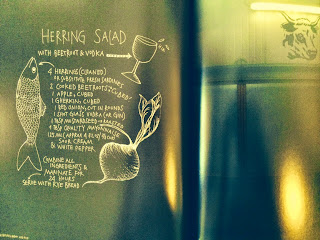 HERRING SALAD
WITH BEETROOT & VODKA
4 HERRINGS (CLEANED)
OR SUBSTITUTE FRESH SARDINES
2 COOKED BEETROOTS, CUBED
1 APPLE, CUBED
1 GHERKIN, CUBED
1 RED ONION, CUT IN ROUNDS
1 SHOT GLASS VODKA (OR GIN)
1 TBSP MUSTARD SEED - ROASTED
4 TBSP QUALITY MAYONNAISE
125 ML (APPROX 4 FL OZ)
SOUR CREAM
& WHITE PEPPER
COMBINE ALL
INGREDIENTS &
MARINATE FOR
24 HOURS
SERVE WITH RYE BREAD